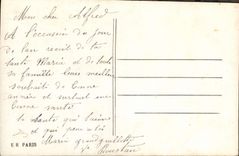 Mon cher Alfred
A l'occasion du jour
de l'an reçoit de ta
tante Maria et de toute
sa famille leurs meilleurs
souhait de bonne
année et surtout une
bonne santé
ta tante qui t'aime
et qui pense à toi
Maria
E R PARIS